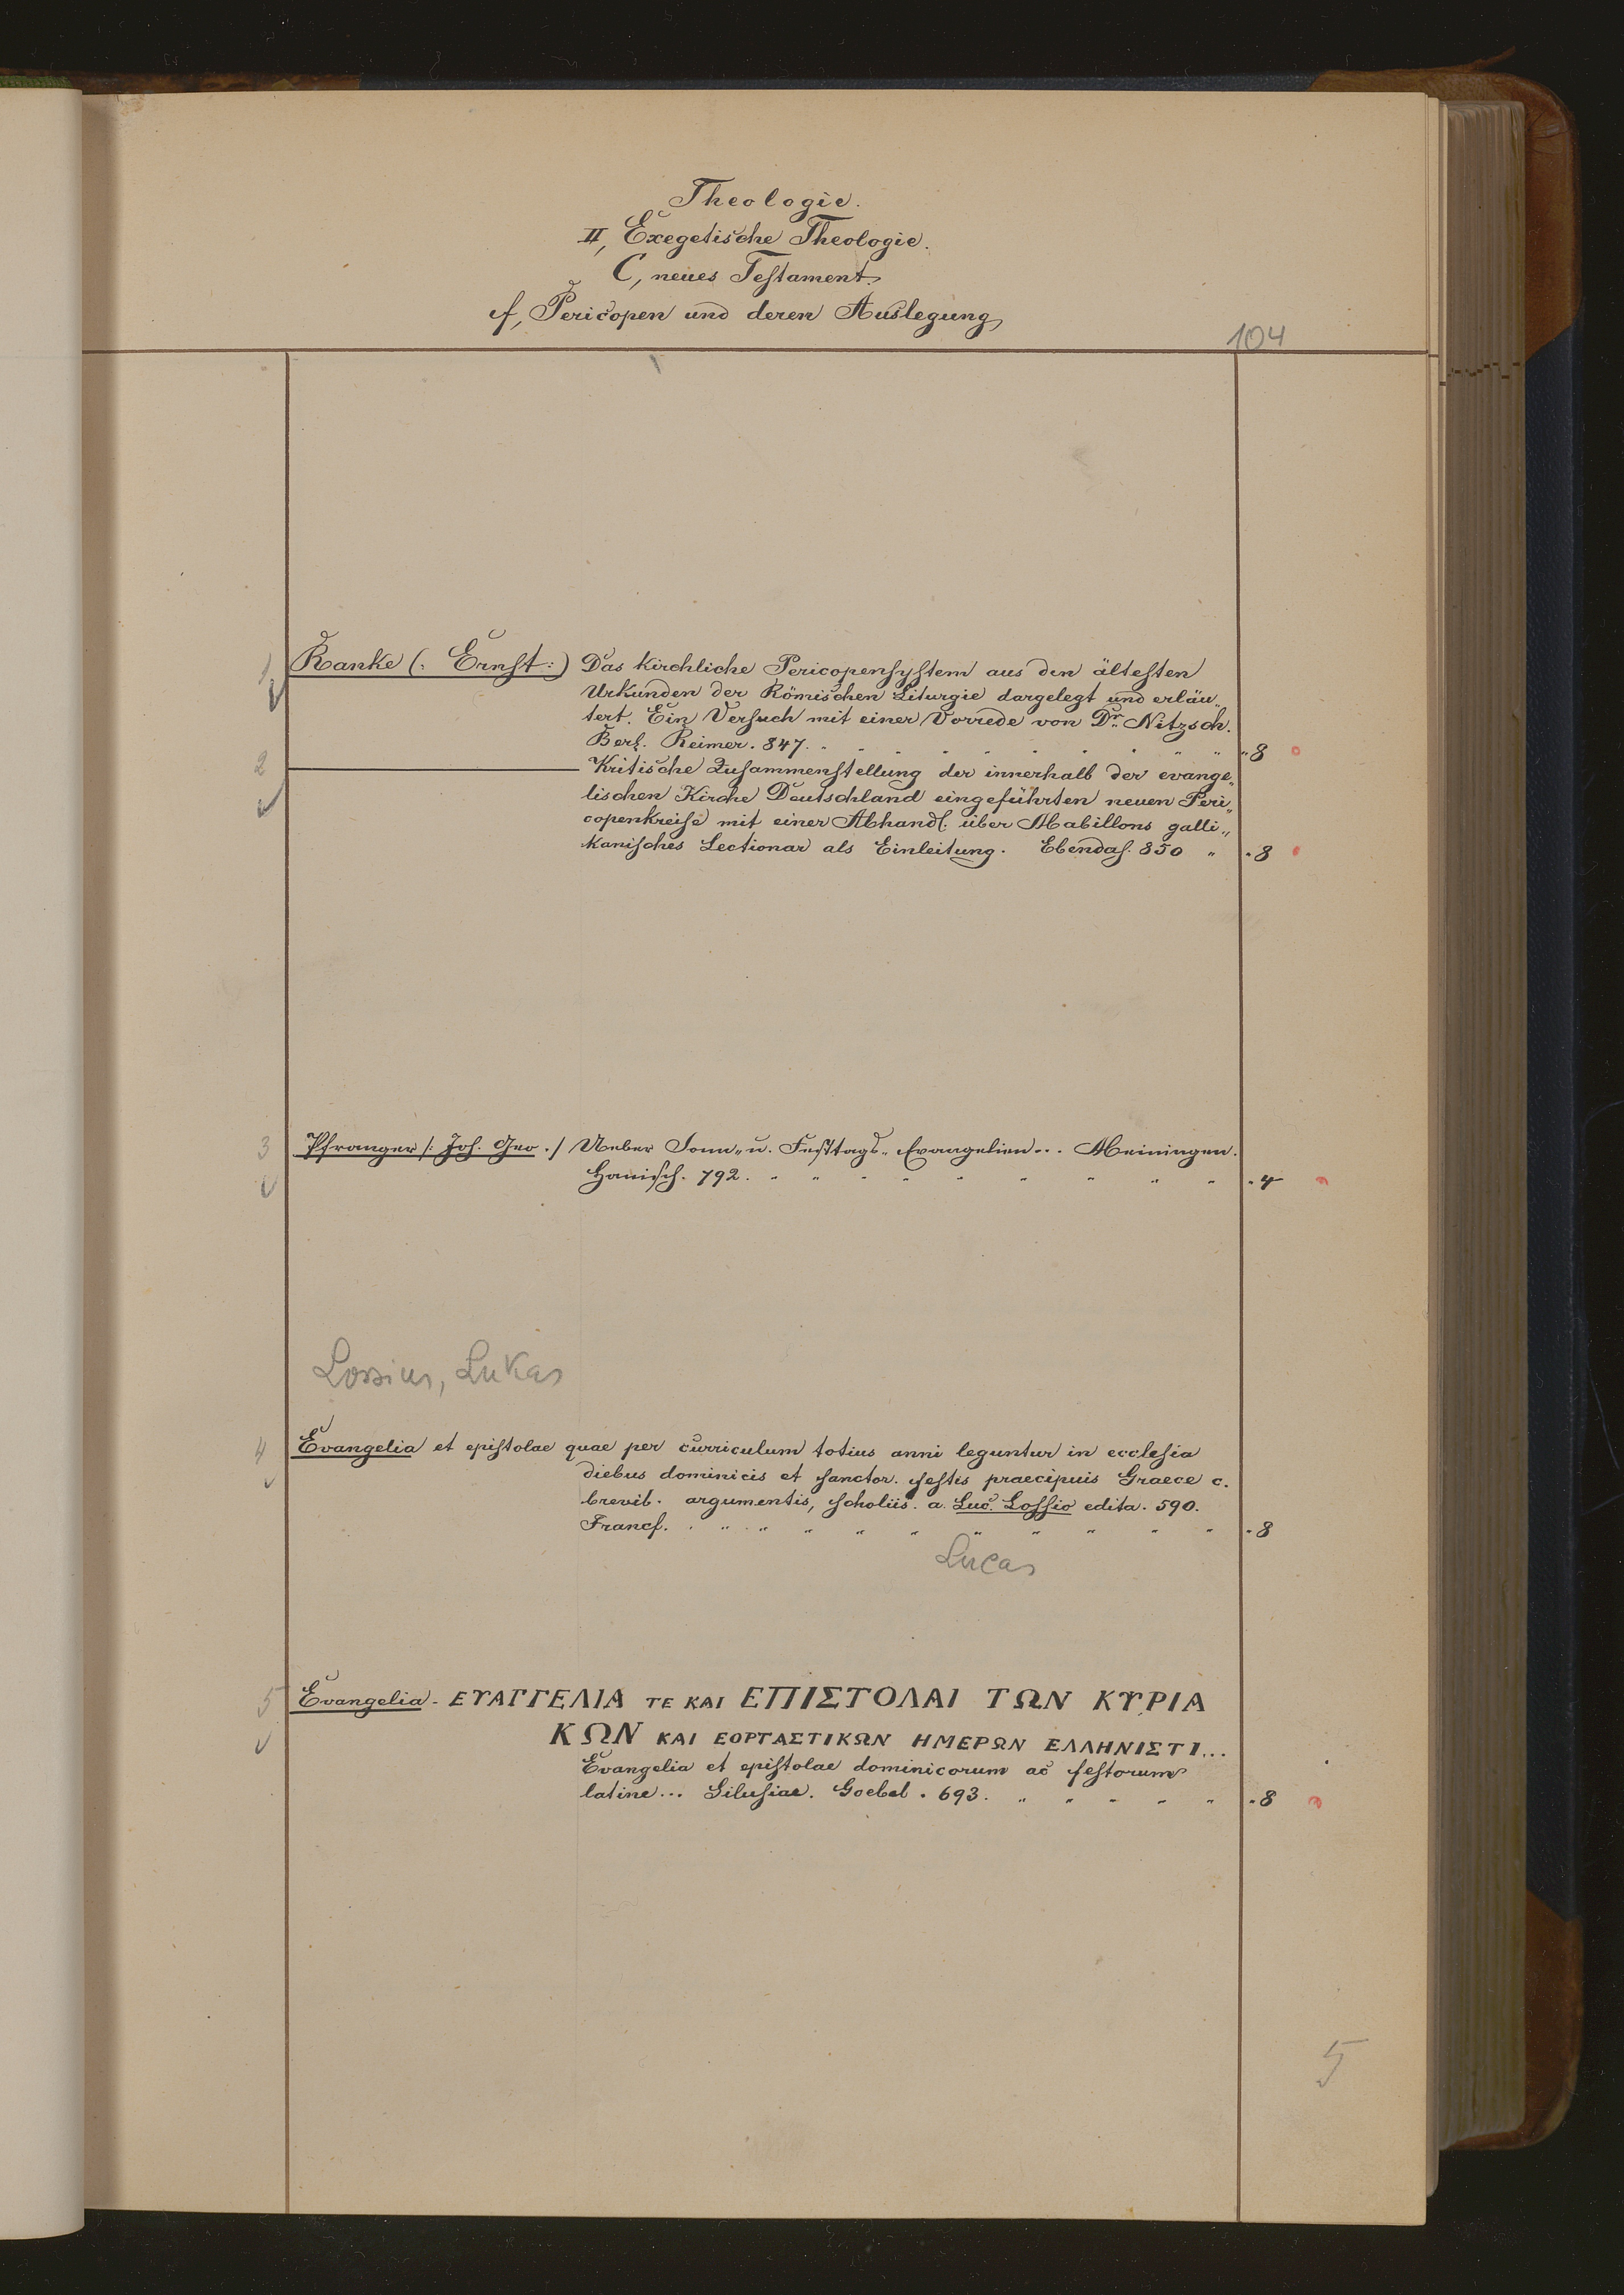 Theologie.
II, Exegetische Theologie.
C, neues Testament.
f, Pericopen und deren Auslegung
104
1 Ranke (: Ernst :) Das kirchliche Pericopensystem aus den ältesten
Urkunden der Römischen Liturgie dargelegt und erläu„
tert. Ein Versuch mit einer Vorrede von Dr. Nitzsch.
Berl. Reimer. 847. " " " " " " " " " " 8
2 Kritische Zusammenstellung der innerhalb der evange„
lischen Kirche Deutschland eingeführten neuen Peri„
copenkreise mit einer Abhandl. über Mabillons galli„
kanisches Lectionar als Einleitung. Ebendas. 850 " " 8
3 Pfranger /: Joh. Geo :/ Ueber Sonn„ u. Festtags„ Evangelien... Meiningen.
Hanisch. 792. " " " " " " " " " " 4
Lossius, Lukas
4 Evangelia et epistolae quae per curriculum totius anni leguntur in ecclesia
diebus dominicis et sanctor. festis praecipuis Graece c.
brevib. argumentis, scholiis. a. Luc. Lossio edita. 590.
Francf. " " " " " " " " " " " " 8
Lucas
5 Evangelia - ΕΥΑΓΓΕΛΙΑ ΤΕ ΚΑΙ ΕΠΙΣΤΟΛΑΙ ΤΩΝ ΚΥΡΙΑ
ΚΩΝ ΚΑΙ ΕΟΡΤΑΣΤΙΚΩΝ ΗΜΕΡΩΝ ΕΛΛΗΝΙΣΤΙ...
Evangelia et epistolae dominicorum ac festorum
latine... Silusiae. Goebel. 693. " " " " " " 8
5